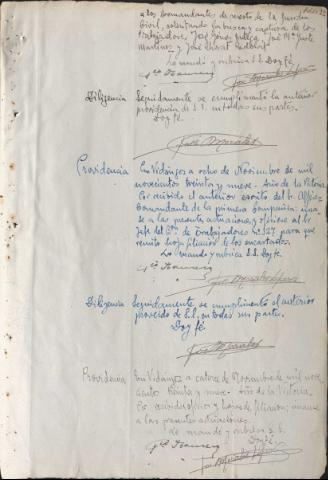 a los Comandantes de puesto de la Guardia
Civil, interesando la busca y captura de los
trabajadores, José
Martinez y José
Lo mandó y rubrica S.S. Doy fé.
José Morales
Diligencia Seguidamente se cumplimentó la anterior
providencia de S.S. en todas sus partes.
Doy fé.
José Morales
Providencia En Vidángoz a ocho de Noviembre de mil
novecientos treinta y nueve. Año de la Victoria.
Por recibido el anterior escrito del Sr. Alférez
Comandante de la primera Compañía; únase
a las presentes actuaciones, y ofíciese al Sr.
Jefe del Bón de Trabajadores Nº 127 para que
remita hojas filiación de los encartados.
Lo mandó y rubrica S.S. Doy fé.
José Morales
Diligencia Seguidamente se cumplimentó el anterior
proveído de S.S. en todas sus partes.
Doy fé.
José Morales
Providencia En Vidángoz a catorce de Noviembre de mil nove-
cientos treinta y nueve. Año de la Victoria.
Por recibido oficio y hojas de filiación; únanse
a las presentes actuaciones.
Lo mandó y rubrica S.S.
Doy fé.
José Morales